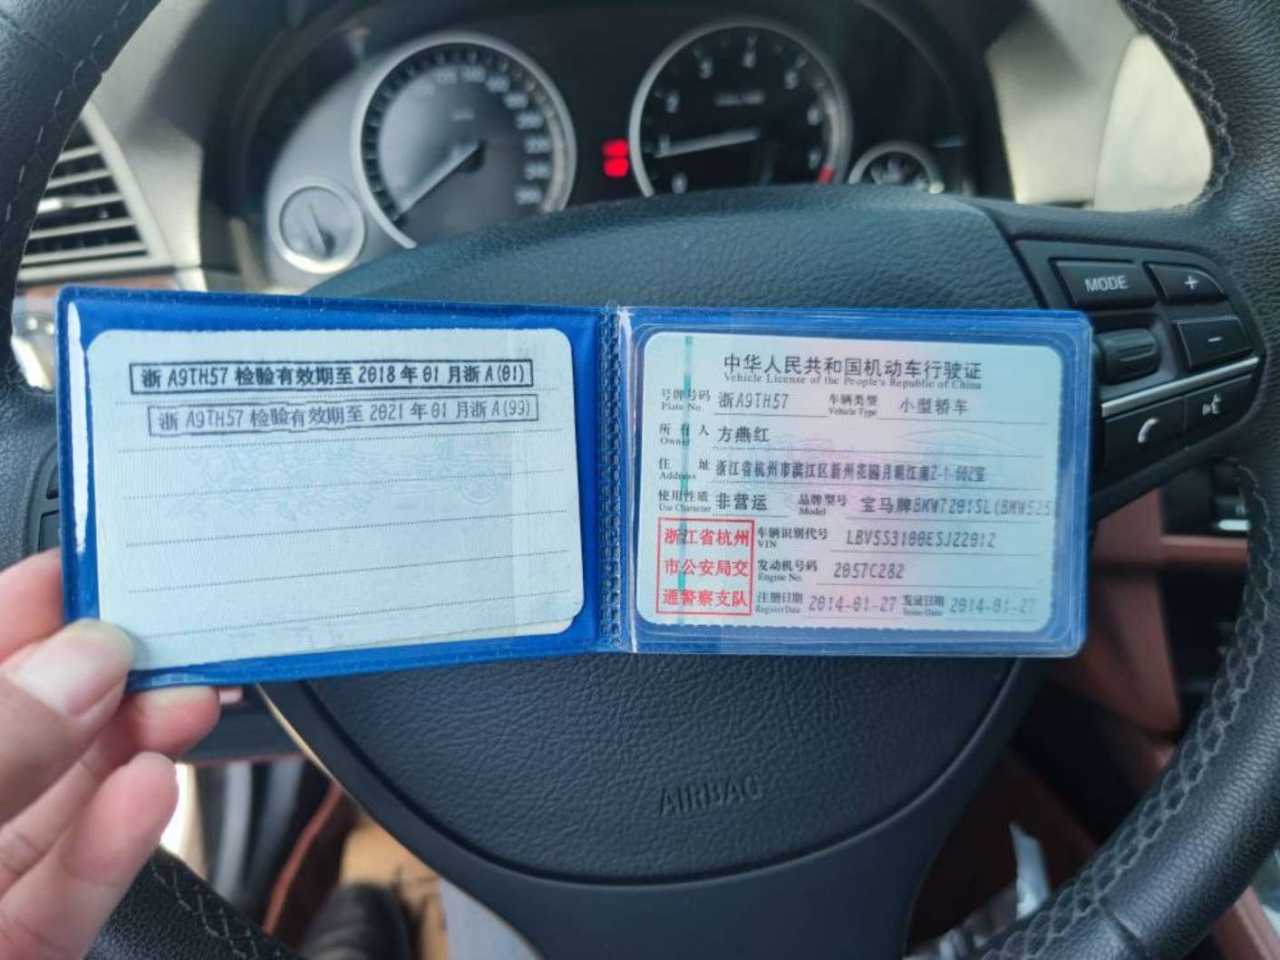 浙A9TH57检验有效期至2018年01月浙A(01)
浙A9TH57检验有效期至2021年01月浙A(99)
中华人民共和国机动车行驶证
Vehicle License of the People's Republic of China
号牌号码 浙A9TH57 车辆类型 小型轿车
Plate No. Vehicle Type
所有人 方燕红
Owner
住址 浙江省杭州市滨江区新州花园月明江南2-1-602室
Address
使用性质 非营运 品牌型号 宝马牌BMW7201SL(BMW525
Use Character Model
浙江省杭州 车辆识别代号 LBV5S3100ESJ22012
VIN
市公安局交 发动机号码 2057C282
Engine No.
通警察支队 注册日期 2014-01-27 发证日期 2014-01-27
Register Date Issue Date
MODE
+
-
AIRBAG